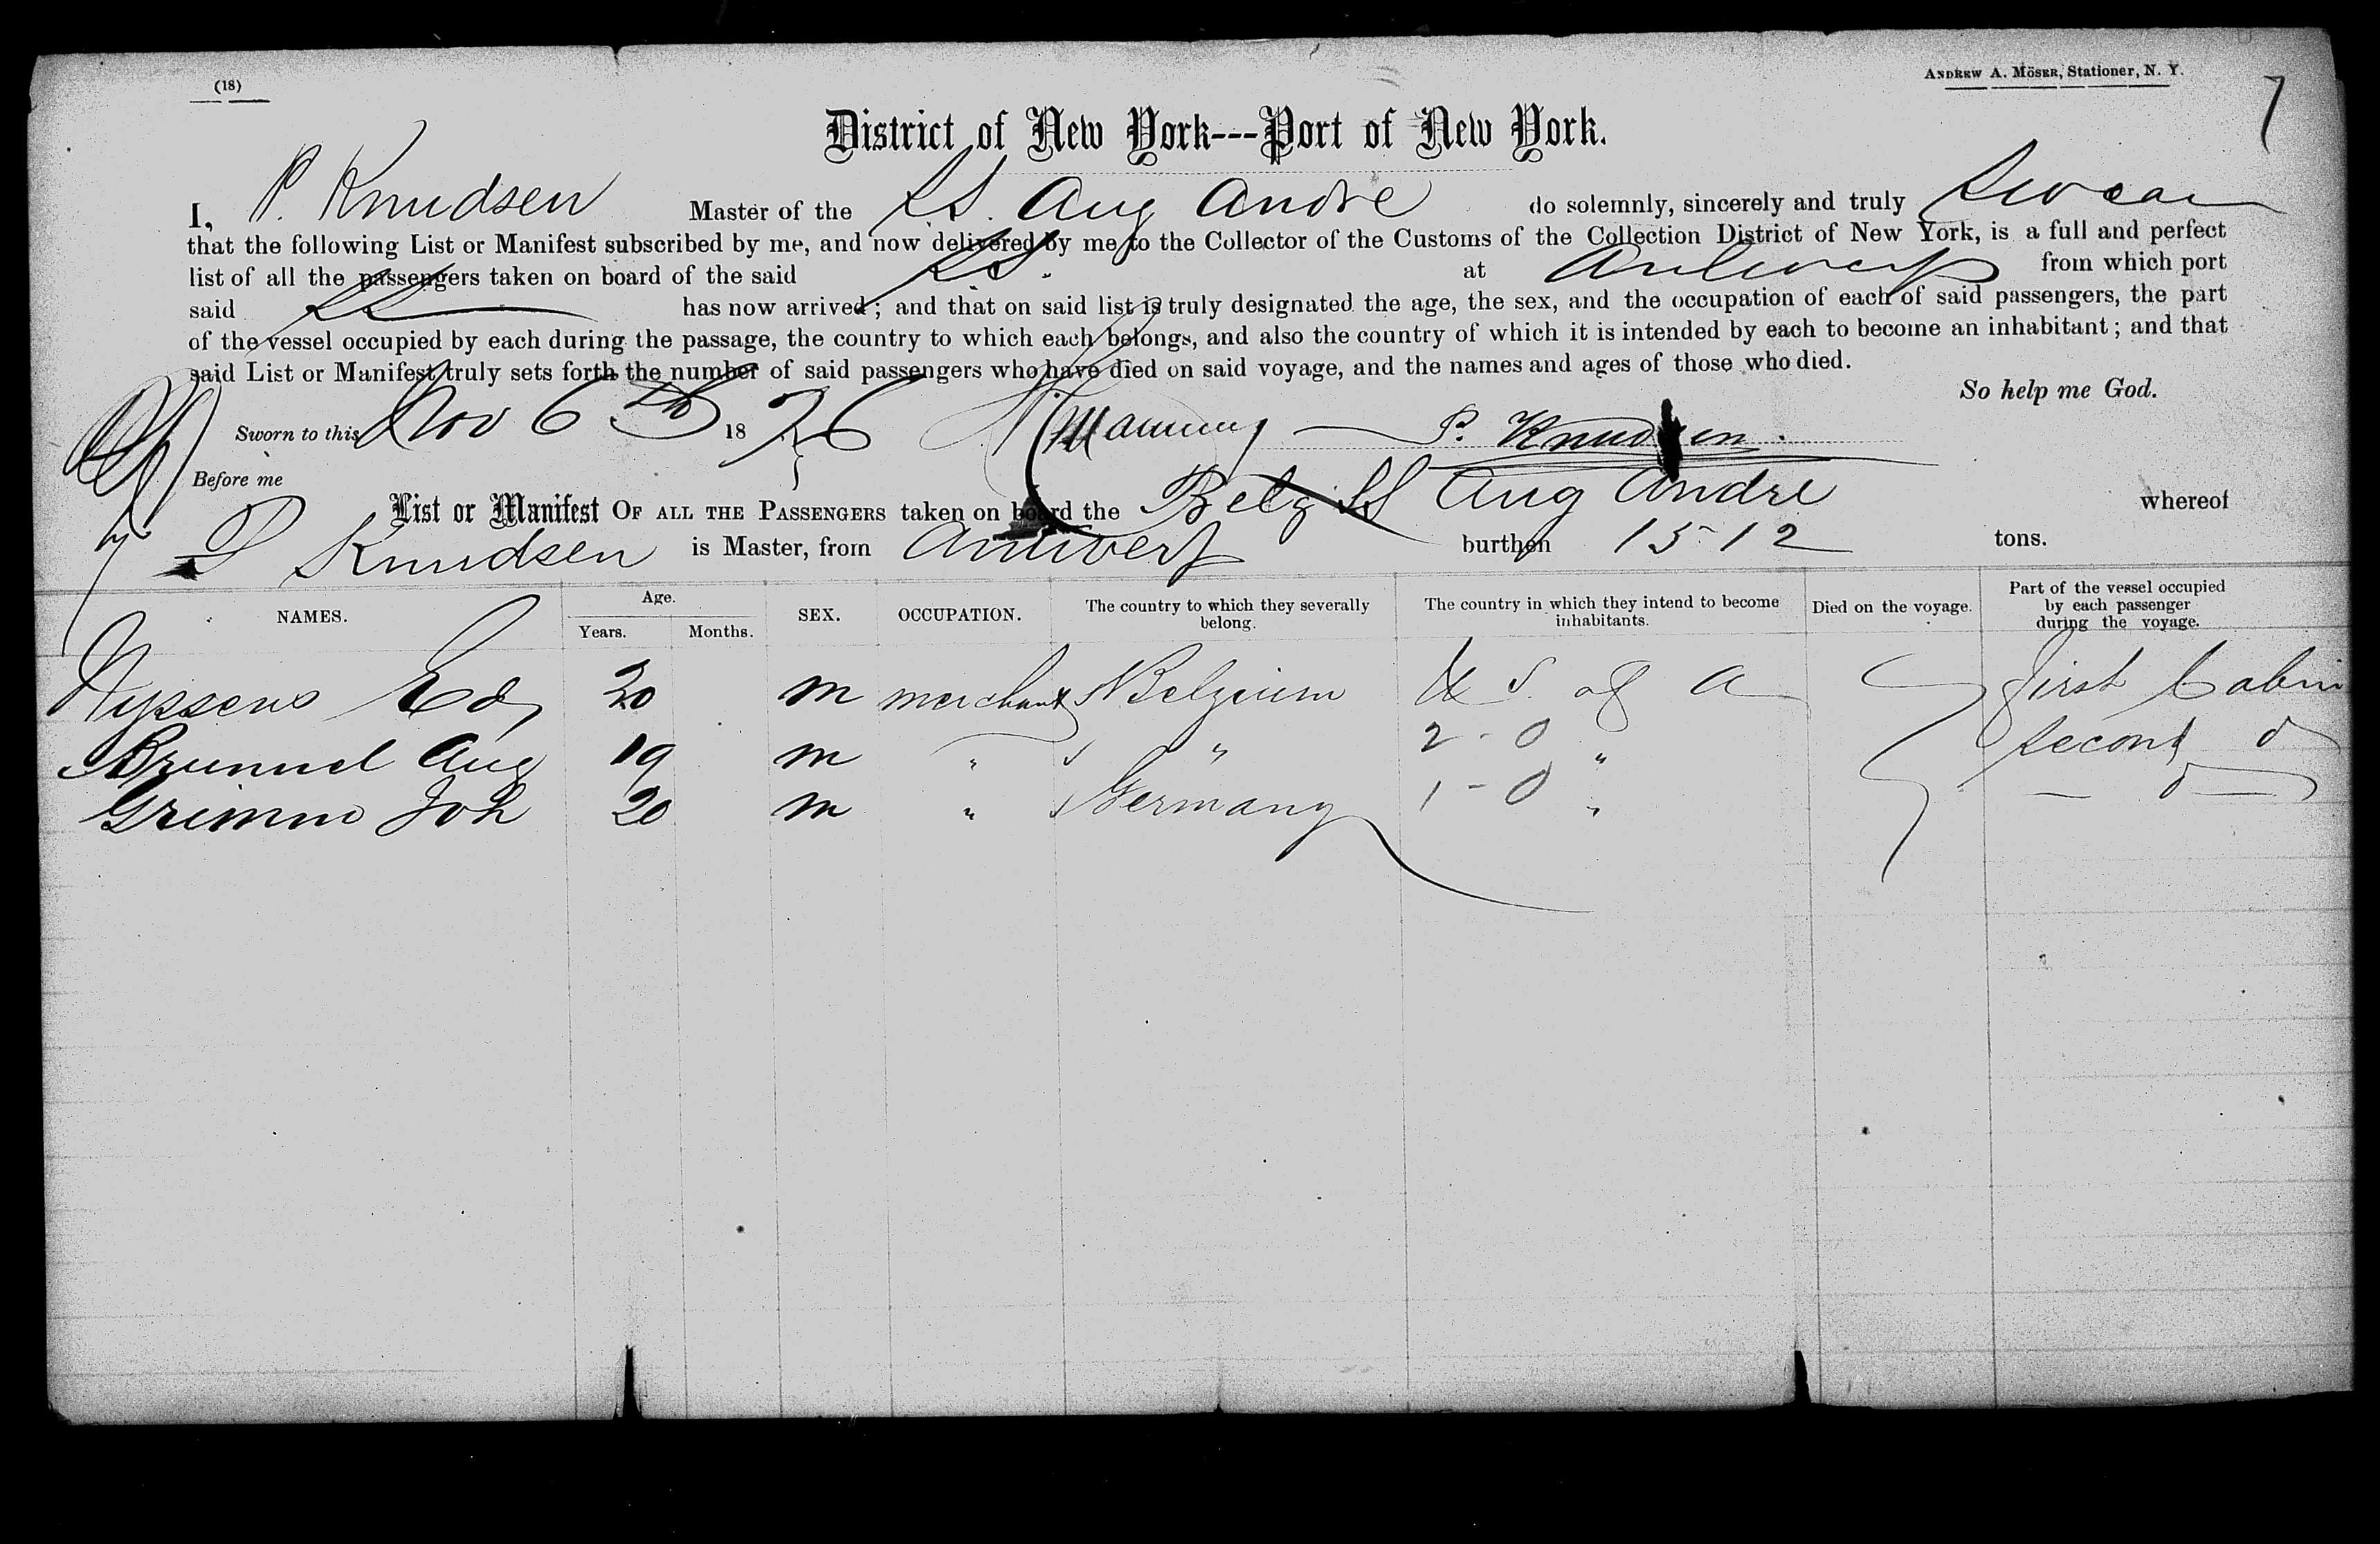 (18)
ANDREW A. MÖSER, Stationer, N. Y.
7
District of New York---Port of New York.
I, P. Knudsen Master of the SS. Aug Andre do solemnly, sincerely and truly Swear
that the following List or Manifest subscribed by me, and now delivered by me to the Collector of the Customs of the Collection District of New York, is a full and perfect
list of all the passengers taken on board of the said SS. at Antwerp from which port
said SS has now arrived; and that on said list is truly designated the age, the sex, and the occupation of each of said passengers, the part
of the vessel occupied by each during the passage, the country to which each belongs, and also the country of which it is intended by each to become an inhabitant; and that
said List or Manifest truly sets forth the number of said passengers who have died on said voyage, and the names and ages of those who died.
So help me God.
Sworn to this Nov 6th 1876 Manning P. Knudsen.
Before me
List or Manifest OF ALL THE PASSENGERS taken on board the Belg SS Aug Andre whereof
P Knudsen is Master, from Antwerp burthen 1512 tons.
NAMES. Age. Years. Months. SEX. OCCUPATION. The country to which they severally belong. The country in which they intend to become inhabitants. Died on the voyage. Part of the vessel occupied by each passenger during the voyage.
Nyssens Ed 20 m merchant Belgium U S. of A First Cabin
Brunnel Aug 19 m " " 2 - 0 " Second d
Grimm Joh 20 m " Germany 1 - 0 " — d